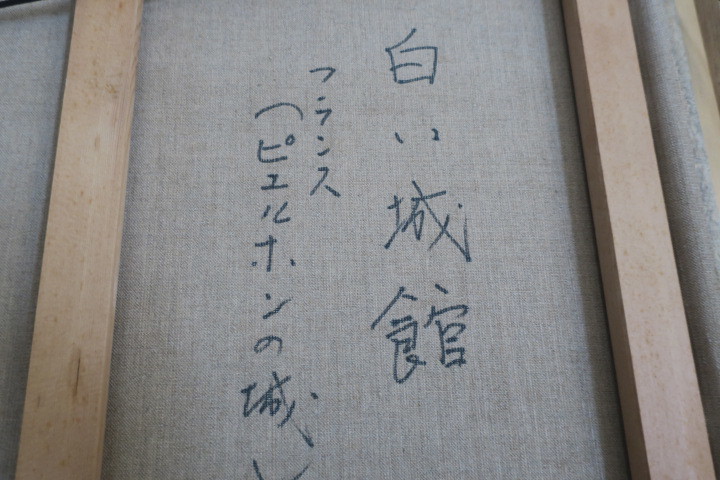 白い城館
フランス
(ピエルホンの城)